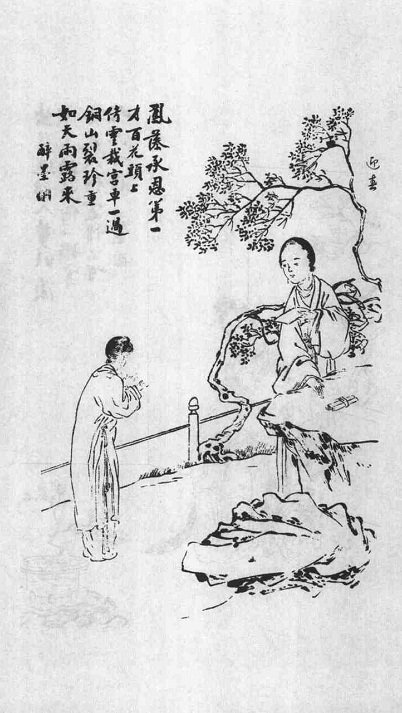 迎春
鳳藻承恩第一
才百花頭上
倚雲栽宮車一過
銅山裂珍重
如天雨露來
醉墨